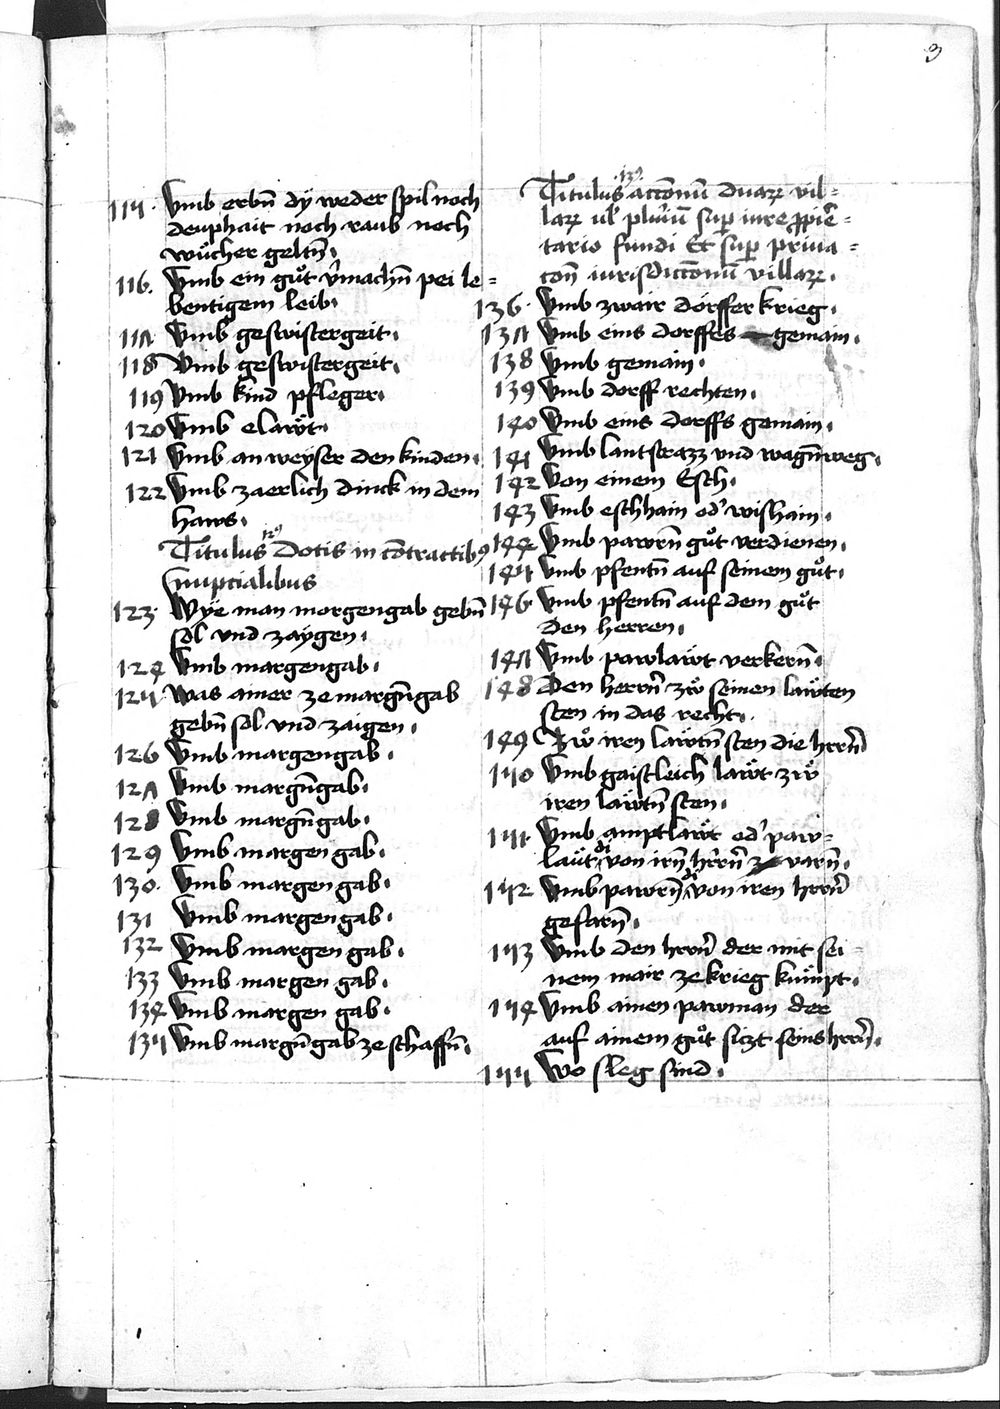 3
115. Umb erbn̄ dÿ weder spil noch
deuphait noch raub noch
wücher geltn̄.
116. Umb ein gůt v̉machn̄ pei le=
bentigem leib.
117. Umb geswistergeit.
118 Umb geswistergeit.
119 Umb kind pfleger.
120 Umb elawt.
121 Umb an weyser den kinden.
122 Umb zaerlich dinck in dem
haws.
Titulus 12⁹ Dotis in cōtractib⁹
Nuptialibus
123. Wye man morgengab gebn̄
sol vnd zaÿgen.
124 Umb margengab.
125. Was ainer ze margn̄gab
gebn̄ sol vnd zaigen.
126 Umb margengab.
127 Umb margn̄gab.
128 Umb margn̄gab.
129 Umb margen gab.
130. Umb margen gab.
131 Umb margengab.
132 Umb margen gab.
133 Umb margen gab.
134 Umb margen gab.
135 Umb margn̄gab ze schaffn̄.
Titulus 13⁹ acc̄onū duaꝝ vil=
laꝝ ul̉ pluriū sup̄ iure
tario fundi Et sup̄ priua=
con̄ iurisdicc̄onū villaꝝ.
136. Umb zwair dörffer krieg.
137 Umb eins dorffes gemain.
138 Umb gemain.
139 Umb dorff rechten.
140 Umb eins dorffs gemain.
141 Umb lantstrazz vnd wagn̄weg.
142 Von einem Esch.
143 Umb eschhain od̉ wishain.
144 Umb pawrn̄ gůt verdienen.
145 Umb pfentn̄ auf seinem gůt.
146. Umb pfentn̄ auf dem gůt
den herren.
147 Umb pawlawt verkern̄.
148 Den herrn̄ zẘ seinen lawten
sten in das recht.
149 Zẘ iren lawtn̄ sten die hrrn̄
150 Umb gaistleich lawt zẘ
iren lawtn̄ sten.
151. Umb amptlawt od̉ paw=
laüt di von irn̄ hrrn̄ varn̄.
152 Umb pawrn̄ di von iren hrrn̄
gefarn̄.
153 Umb den hrrn̄ der mit sei=
nem mair ze krieg kumpt.
154 Umb ainen pawman der
auf ainem gůt siczt seins hrrn̄.
155 Wo sleg sind.